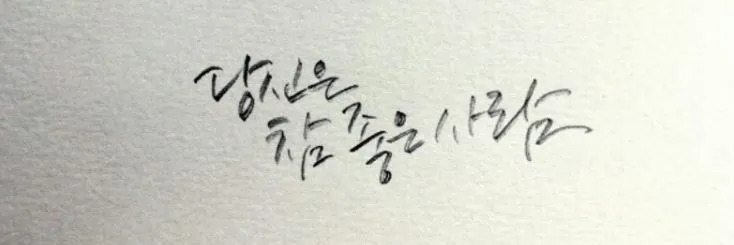 당신은
참 좋은 사람